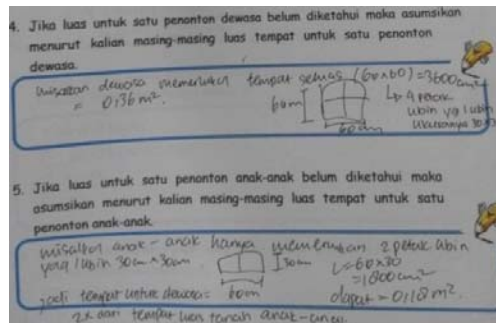 4. Jika luas untuk satu penonton dewasa belum diketahui maka asumsikan
menurut kalian masing-masing luas tempat untuk satu penonton
dewasa.
misalkan dewasa memerlukan tempat seluas (60x60) = 3600 cm²
= 0,36 m².
60cm
60cm
↳ 4 petak
ubin yg 1 ubin
ukurannya 30x30
5. Jika luas untuk satu penonton anak-anak belum diketahui maka
asumsikan menurut kalian masing-masing luas tempat untuk satu
penonton anak-anak.
misalkan anak-anak hanya memerlukan 2 petak ubin
yang 1 ubin 30cm x 30cm.
30cm
60cm
L = 60x30
= 1800 cm²
dapat = 0,18 m².
jadi tempat untuk dewasa =
2x dari tempat luas tanah anak-anak.